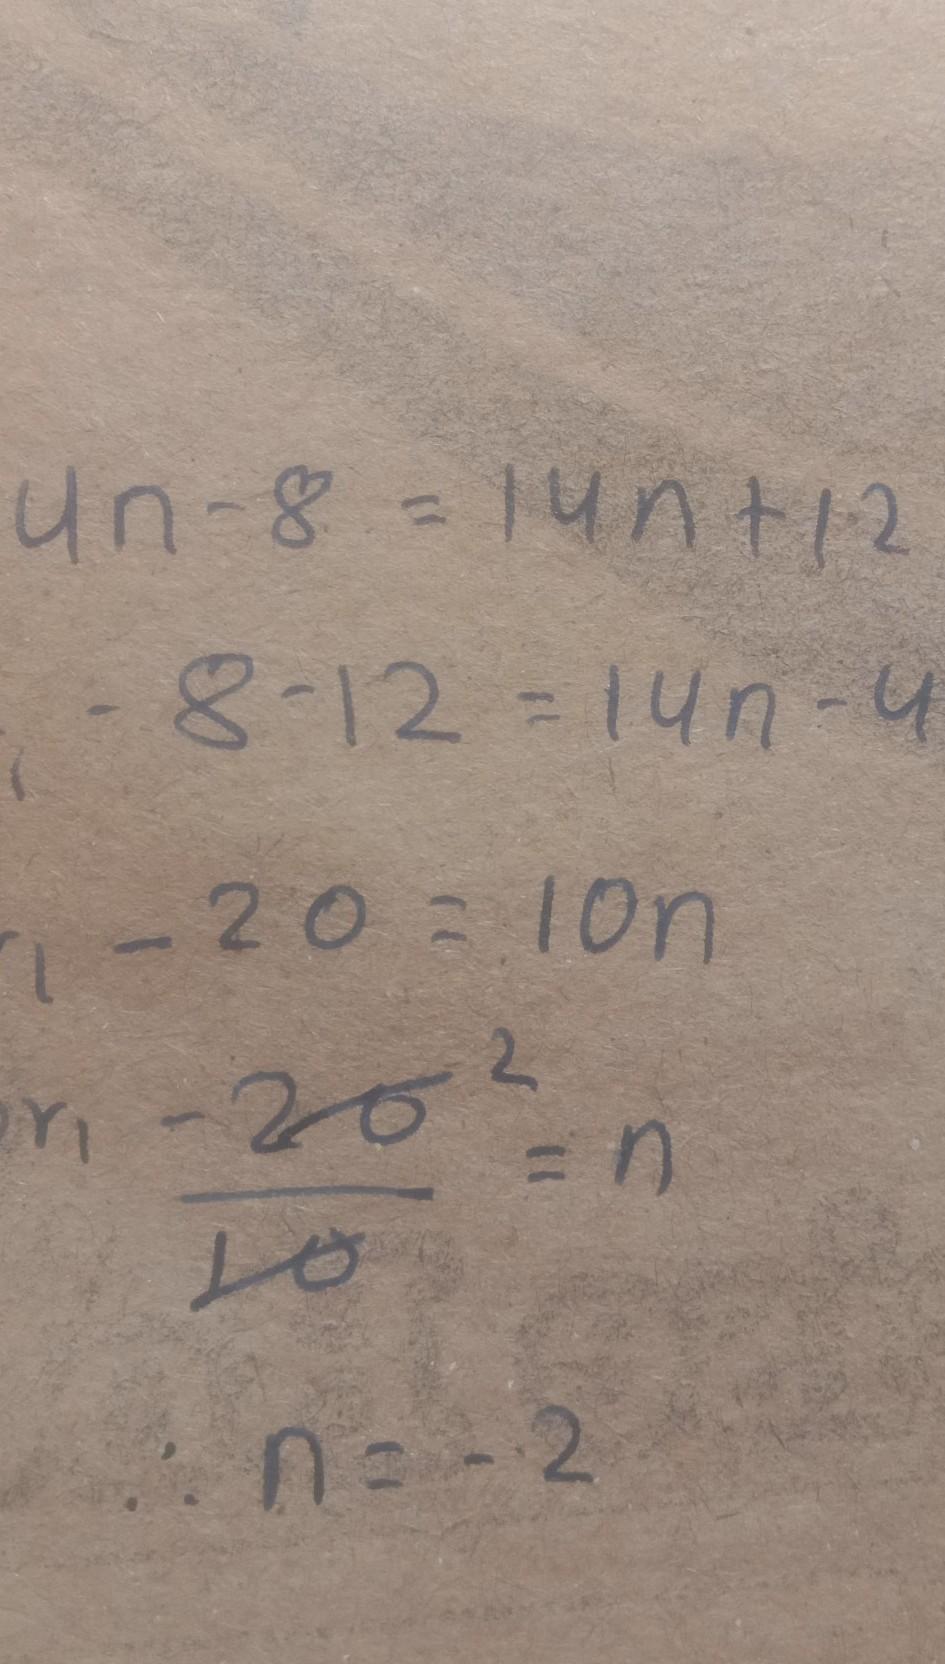 4n-8 = 14n+12
, -8-12 = 14n-4
r, -20 = 10n
or, -20 2
= n
10
∴ n = -2